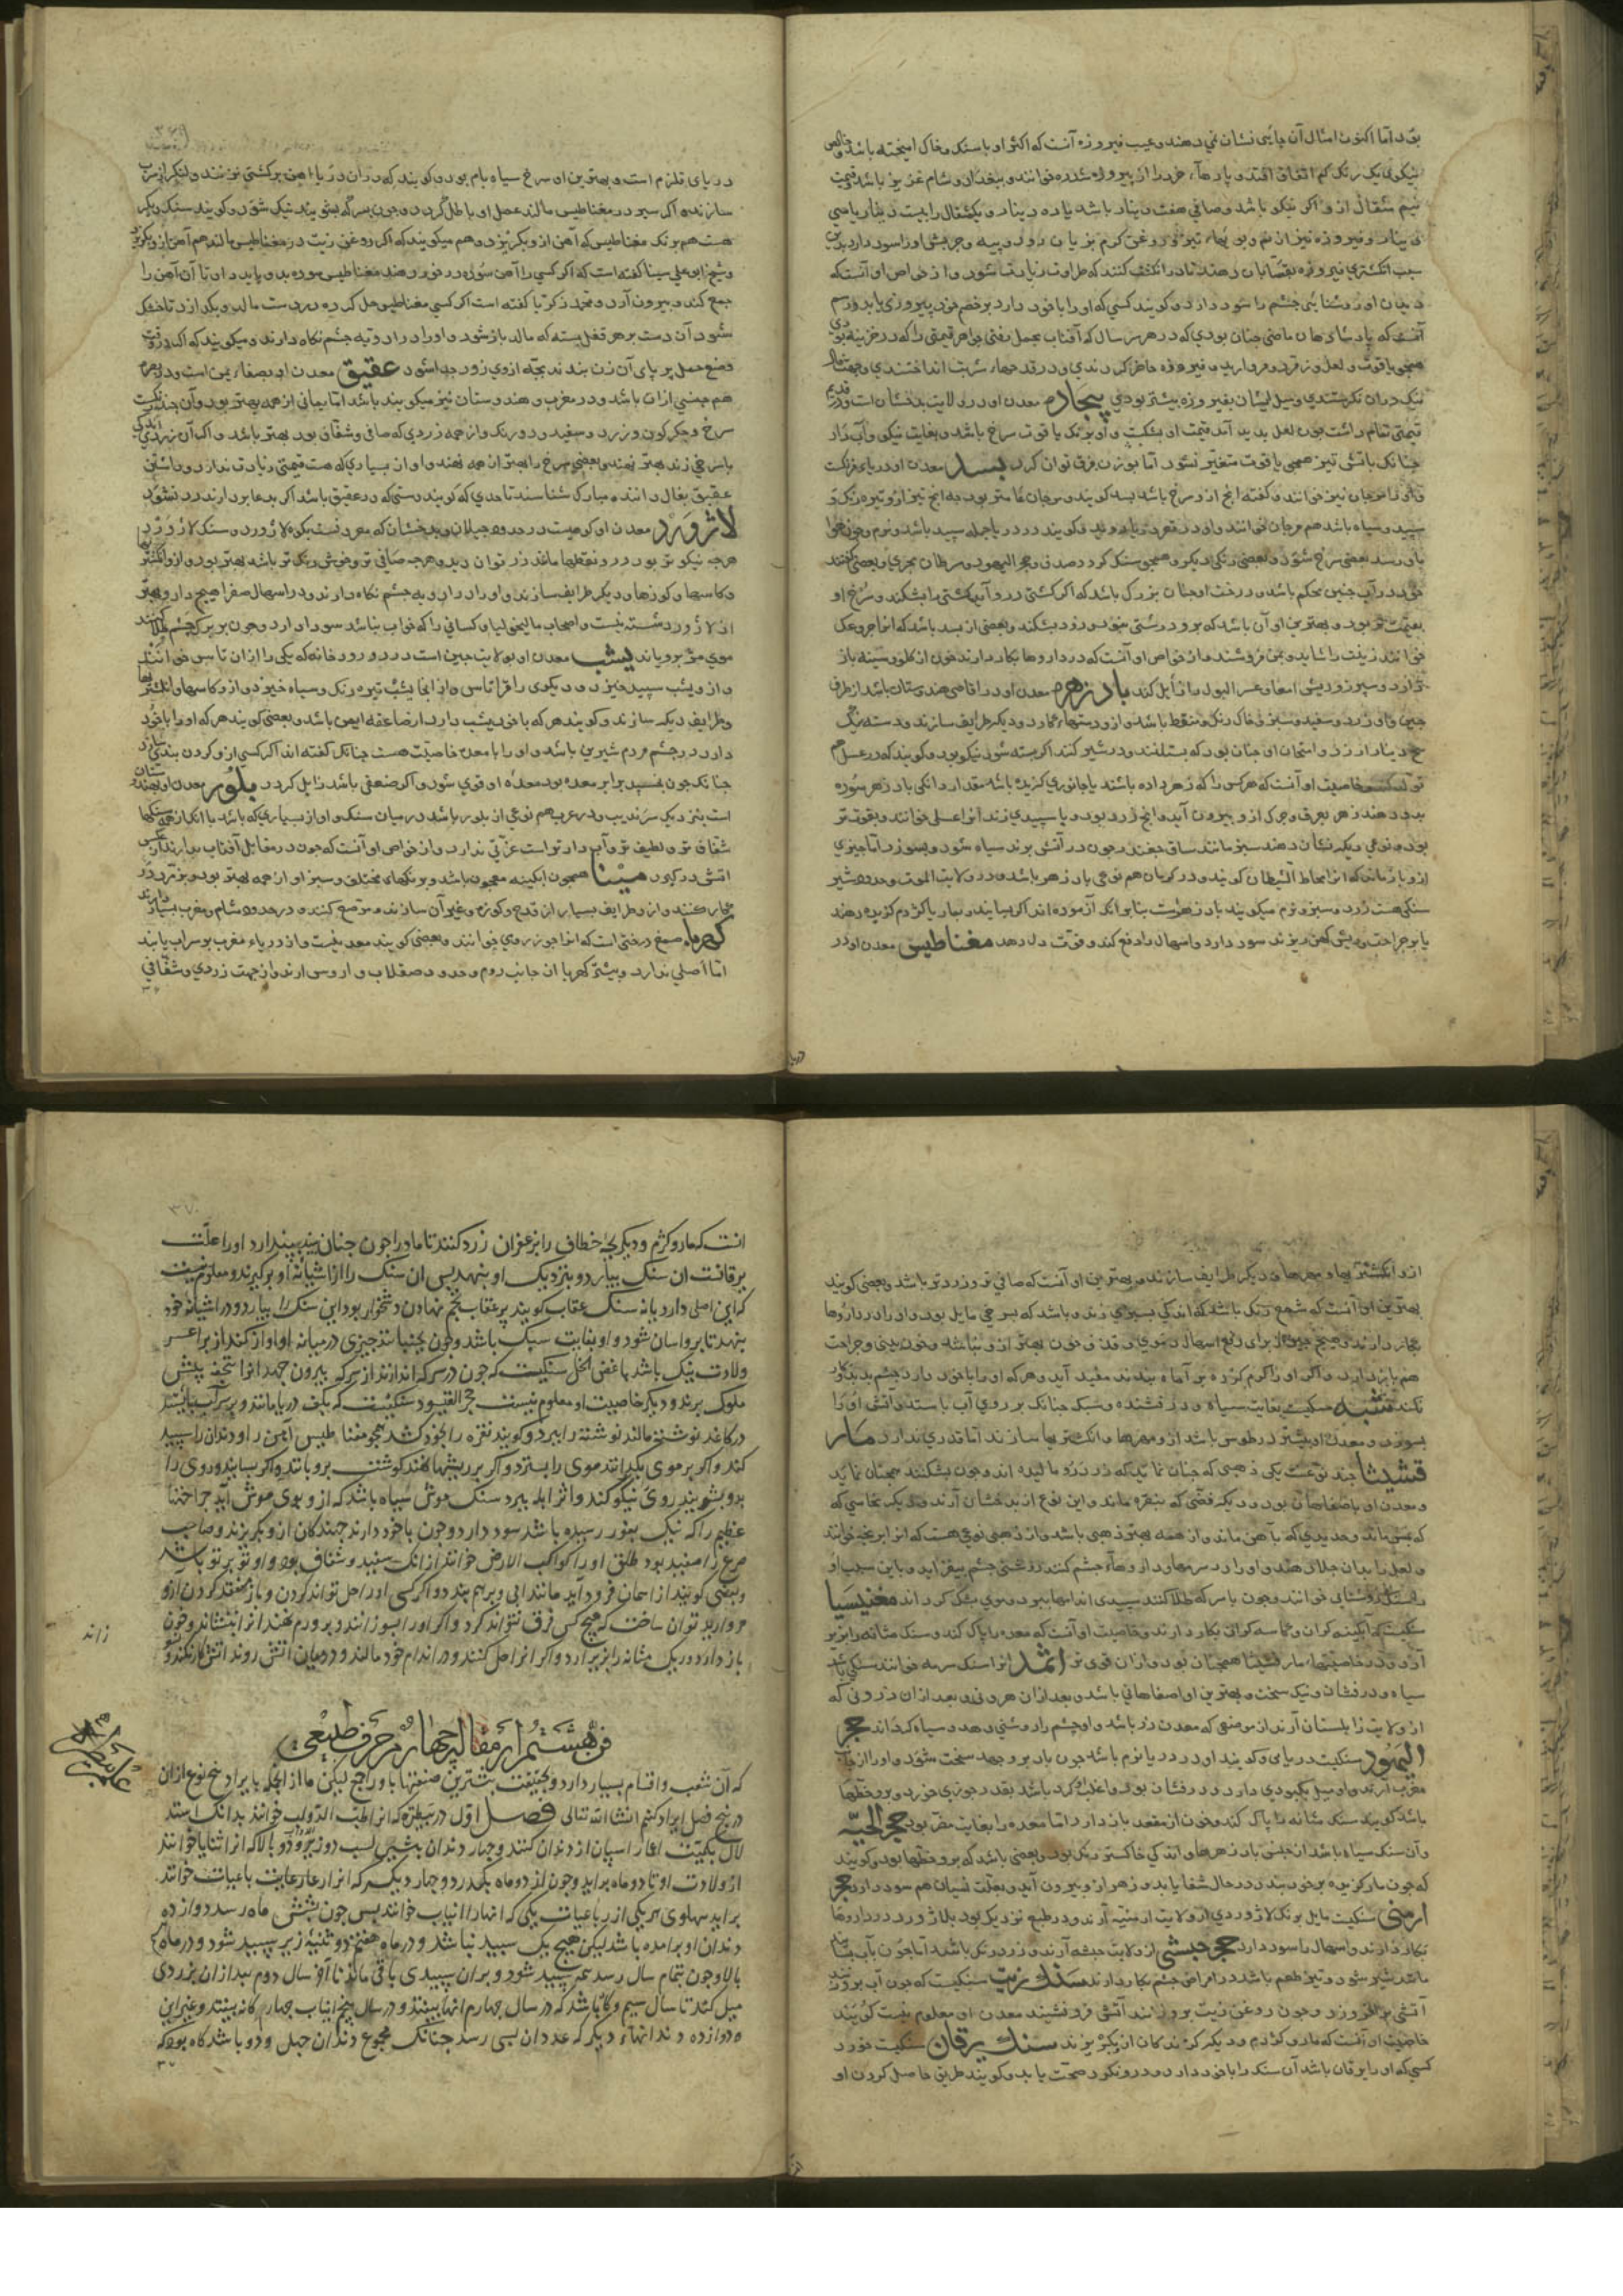 بود اما اکنون امثال آن جایی نشان نمی دهند و عیب فیروزه آنست که اکثر او با سنک و خاک امیخته باشد و خالص
نیکوی یک رنک کم اتفاق افتد و پارها خرد را از پیروزه شذره خوانند و ببغداد و شام عزیز باشد و قیمت
نیم مثقال از و اکر نیکو باشد و صافی هفت دینار باشد یا ده دینار و یکمثقال را بیست دینار یا سی
دینار و فیروزه نیز از نم و بوبهاء تیز و روغن کرم بزیان رود و پیه و چربش او را سود دارد بدین
سبب انکشتری فیروزه بقصابان دهند تا در انکشت کنند که طراوت زیادت شود و از خواص او آنست که
دیدن او روشنایی چشم را سود دارد و کویند کسی که او را با خود دارد بر خصم خود پیروزی یابد و رسم
آنست که پادشاهان ماضی چنان بودی که در هر سر سال که آفتاب بحمل رفتی جواهر قیمتی را که در خزینه بودی
همچو یاقوت و لعل و زمرد و مروارید و فیروزه حاضر کردندی و در قدحهاء شربت انداختندی و جهت تفاؤل
نیک در ان نکریستندی و میل ایشان بفیروزه بیشتر بودی بیجاده معدن او در ولایت بدخشان است و در قدیم
قیمتی تمام داشت چون لعل پدید آمد قیمت او بشکست و او برنک یاقوت سرخ باشد و بغایت نیکو و آب دار
چنانک باتش تیز همچو یاقوت متغیر نشود اما بوزن فرق توان کرد بسد معدن او دریاء فرنکست
و او را مرجان نیز خوانند و کفته اند انچ ازو سرخ باشد بسد کویند و مرجان عامتر بود چه انچ نیز ازو تیره رنک و
سپید و سیاه باشد هم مرجان خوانند و او در قعر دریا روید و کویند در دریا جمله سپید باشد و نرم و چون هوا
باو رسد بعضی سرخ شود و بعضی رنکی دیکر و همچو سنک کردد صدف و حجر الیهود و سرطان بحری و بعضی کفتند
خود در آب چنین محکم باشد و درخت او چنان بزرک باشد که اکر کشتی در و آید کشتی را بشکند و سرخ او
بقیمت تر بود و بهترین او آن باشد که بر و درشتی نبود و زود بشکند و بعضی از بسد باشد که انرا خروهک
خوانند زینت را شاید و بمن فروشند و از خواص او آنست که در داروها بکار دارند خون از کلو و سینه باز
دارد و سپرز و ریش امعا و عسر البول را زایل کند بادزهر معدن او در اقاصی هندوستان باشد از طرف
چین و او زرد و سفید و سبز و خاک رنک و منقط باشد و ازو دستهاء کارد و دیکر طرایف سازند و دسته نیک
پنج دینار ارزد و امتحان او چنان بود که بسلنفند و در شیر کنند اکر بسته شود نیکو بود و کویند که در عسل هم
خاصیت او آنست که هر کس را که زهر داده باشند یا جانوری کزیده باشد مقدار دانکی بادزهر سوده
بدو دهند زهر بعرق و چرک از و بیرون آید و انچ زرد بود و با سپیدی زند انرا عسلی خوانند و بقوت تر
بود و نوعی دیکر نشان دهند سبز مانند ساق چغندر چون در آتش برند سیاه شود و بسوزد اما چیزی
از و باز ماند که انرا مخاط الشیطان کویند و در کرمان هم نوعی بادزهر باشد و در ولایت الموت و حدود شیر
سنکی هست زرد و سبز و نرم میکویند بادزهرست بنا بر انک آزموده اند اکر بسایند و بمار یا کژدم کزیده دهند
یا بر جراحت و ریش کهن ریزند سود دارد و اسهال را دفع کند و قوت دل دهد مغناطیس معدن او در
دریای قلزم است و بهترین او سرخ سیاه بام بود و کویند که در آن دریا آهن بر کشتی نزنند و لنکر از سرب
سازند و اکر سیر در مغناطیس مالند عمل او باطل کردد و چون بسرکه بشویند نیک شود و کویند سنک دیکر
هست هم برنک مغناطیس که آهن از و بکریزد و هم میکویند که اکر روغن زیت در مغناطیس مالند هم آهن ازو بکریزد
و شیخ ابو علی سینا کفته است که اکر کسی را آهن سوده در خورد دهند مغناطیس سوده بدو باید داد تا آن آهن را
جمع کند و بیرون آرد و محمد زکریا کفته است اکر کسی مغناطیس حل کرده در دست مالد و بکذارد تا خشک
شود آن دست بر هر قفل بسته که مالد باز شود و او را در ادویه چشم نکاه دارند و میکویند که اکر در وقت
وضع حمل بر پای آن زن بندند بچه از وی زود جدا شود عقیق معدن او بصنعاء یمن است و در روم
هم جنسی از ان باشد و در مغرب و هندوستان نیز میکویند باشد اما یمانی از همه بهتر بود و آن چند رنکست
سرخ و جکر کون و زرد و سفید و دو رنک و از جمله زردی که صافی و شفاف بود بهتر باشد و اکر آن زردی اندکی
با سرخی زند بهتر نهند و بعضی سرخ را بهتر از همه نهند و او از بسیاری که هست قیمتی زیادت ندارد و داشتن
عقیق بفال دانند و مبارک شناسند تا حدی که کویند دستی که در و عقیق باشد اکر بدعا بر دارند رد نشود
لاژورد معدن او کوهیست در حدود جیلان و بدخشان که معروفست بکوه لاژورد و سنک لاژورد
هرچه نیکو تر بود در و نقطها مانند زر توان دید و هرچه صافی تر و خوش رنک تر باشد بهتر بود و ازو انکشتریها
و کاسها و کوزها و دیکر طرایف سازند و او را در ادویه چشم نکاه دارند و در اسهال صفرا هیچ دارو بهتر
از لاژورد شسته نیست و اصحاب مالیخولیا و کسانی را که خواب نباشد سود دارد و چون بر پرک چشم طلا کنند
موی مژه برویاند یشب معدن او بولایت چین است در دو رودخانه که یکی را از ان تاس خوانند
و از و یشب سپید خیزد و دیکری را قراتاس و از انجا یشب تیره رنک و سیاه خیزد و ازو کاسها و انکشتریها
و طرایف دیکر سازند و کویند هر که با خود یشب دارد از صاعقه ایمن باشد و بعضی کویند هر که او را با خود
دارد در چشم مردم شیرین باشد و او را با معده خاصیت هست چنانک کفته اند اکر کسی ازو کردن بند سازد
چنانک چون بخسپد برابر معده بود معده او قوی شود و اکر ضعفی باشد زایل کردد بلور معدن او هندوستان
است بنزدیک سرندیب و در عرب هم نوعی از بلور باشد در میان سنک و او از بسیاری که باشد با انک از همه سنکها
شفاف تر و لطیف تر و آب دارتر است عزتی ندارد و از خواص او آنست که چون در مقابل آفتاب بدارند از عکس
اتش در کیرد مینا همچون ابکینه معجون باشد و برنکهای مختلف و سبز او از همه بهتر بود و بزر در
بکار کنند و از و طرایف بسیار از قدح و کوزه و غیر آن سازند و مرصع کنند و در حدود شام و مغرب بسیار دارند
کهربا صمغ درختی است که انرا جوز رومی خوانند و بعضی کویند معدنیست و از دریاء مغرب بر سر آب یابند
اما اصلی ندارد و بیشتر کهربا از جانب روم و حدود صقلاب و اروس ارند و از جهت زردی و شفافی
ازو انکشتریها و مهرها و دیکر طرایف سازند و بهترین او آنست که صافی تر و زرد تر باشد و بعضی کویند
بهترین او آنست که شمع رنک باشد که اندکی بسبزی زند و باشد که بسرخی مایل بود و او را در داروها
بکار دارند و هیچ چیز از برای رفع اسهال دموی و قذف خون بهتر ازو نباشد و خون بینی و جراحت
هم باز دارد و اکر او را کرم کرده بر آماه بندند مفید آید و هر که او را با خود دارد چشم بد بدو کار
نکند شبه سنکیست بغایت سیاه و درفشنده و سبک چنانک بر روی آب باستد و آتش او را
بسوزد و معدن او بیشتر در طوس باشد ازو مهرها و انکشتریها سازند اما قدری ندارد مار
قشیشا چند نوعست یکی ذهبی که چنان نماید که زر درو مالیده اند و چون بشکنند همچنان نماید
و معدن او باصفاهان بود و دیکر فضی که بنقره ماند و این نوع از بدخشان آرند و دیکر نحاسی که
که بمس ماند و حدیدی که بآهن ماند و از همه بهتر ذهبی باشد و از ذهبی نوعی هست که انرا برنجه خوانند
و لعل را بدان جلا دهند و او را در سرمها و داروهاء چشم کنند روشنی چشم بیفزاید و باین سبب او
را سنک روشنایی خوانند و چون با سرکه طلا کنند سپیدی اندامها ببرد و موی بشک کرداند مغنیسیا
سنکیست که ابکینه کران و کاسه کران بکار دارند و خاصیت او آنست که معده را پاک کند و سنک مثانه را بریزد
آرد و در خاصیتها مارقشیشا همچنان بود و از ان قوی تر اثمد انرا سنک سرمه خوانند سنکی باشد
سیاه و درفشان و نیک سخت و بهترین او اصفاهانی باشد و بعد از ان هروی و بعد از ان زرونی که
از ولایت زابلستان آرند از موضعی که معدن زر باشد و او چشم را روشنی دهد و سیاه کرداند حجر
الیهود سنکیست دریایی و کویند او در دریا نرم باشد چون باد برو جهد سخت شود و او را از جانب
مغرب آرند و او میل بکبودی دارد و درفشان بود و اغلب او کرد باشد بقدر جوزی خرد و برو خطها
باشد کویند سنک مثانه را پاک کند و خون از مقعد باز دارد اما معده را بغایت مضر بود حجر الحیه
و آن سنک سیاه باشد از جنس بادزهرها و اندکی خاکستر رنک بود و بعضی باشد که برو خطها بود و کویند
که چون مار کزیده بر خود بندد در حال شفا یابد و زهر ازو بیرون آید و بعلت نسیان هم سود دارد حجر
ارمنی سنکیست مایل برنک لاژوردی از ولایت ارمنیه آرند و در طبع نزدیک بود بلاژورد در داروها
بکار دارند و اسهال را سود دارد حجر حبشی از ولایت حبشه آرند و زرد رنک باشد اما چون بآب بسایند
مانند شیر شود و تیز طعم باشد در امراض چشم بکار دارند سنک زیت سنکیست که چون آب برو زنند
آتش بر افروزد و چون روغن زیت برو زنند آتش فرو نشیند معدن او معلوم نیست کویند
خاصیت او آنست که مار و کژدم و دیکر کزندکان از و بکریزند سنک یرقان سنکیست خورد
کسی که او را یرقان باشد آن سنک را با خود دارد و درو نکرد صحت یابد و کویند طریق حاصل کردن او
انست که مار و کژدم و دیکر بچه خطاف را بزعفران زرد کنند تا مادر او چون چنان بیند پندارد او را علت
یرقانست ان سنک بیارد و بنزدیک او بنهد پس ان سنک را از اشیانه او بر کیرند و معلوم نیست
که این اصلی دارد یا نه سنک عقاب کویند بر عقاب تخم نهادن دشخوار بود این سنک را بیارد و در اشیانه خود
بنهد تا برو اسان شود و او بغایت سبک باشد و چون بجنبانند چیزی در میانه او اواز کند از برا عسر
ولادت نیک باشد باغض الخل سنکیست که چون در سرکه اندازند از سرکه بیرون جهد انرا تحفه پیش
ملوک برند و دیکر خاصیت او معلوم نیست حجر القیشور سنکیست که بکف دریا ماند و بر سر آب بایستد
در کاغذ نوشته مالند نوشته را ببرد و کویند نقره را بخود کشد همچو مغناطیس آهن را و دندان را سپید
کند و اکر بر موی بکذرانند موی را بسترد و اکر بر ریشها نهند کوشت برویاند و اکر بسایند و روی را
بدو بشویند روی نیکو کند و اثر ابله ببرد سنک موش سیاه باشد که ازو بوی موش آید جراحتها
عظیم را که نیک بغور رسیده باشد سود دارد و چون با خود دارند جهندکان ازو بکریزند و صاحب
صرع را مفید بود طلق او را کواکب الارض خوانند از انک سفید و شفاف بود و او تو بر تو باشد
و بعضی کویند از اسمان فرود آید مانند ابی و بر هم بندد و اکر کسی او را حل تواند کردن و باز منعقد کردن ازو
مروارید توان ساخت که هیچ کس فرق نتواند کرد و اکر او را بسوزانند و بر ورم نهند انرا بنشاند و خون
باز دارد و ریک مثانه را بزیر آرد و اکر انرا حل کنند و در اندام خود مالند و در میان اتش روند اتش کار نکند
زاند
فن هشتم از مقاله چهارم در حرف طبیعی
که آن شعب و اقسام بسیار دارد و بحقیقت بیشترین صنعتها باو راجع لیکن ما از انجمله بایراد پنج نوع از ان
در پنج فصل ایراد کنیم انشا الله تعالی فصل اول در بیطره که انرا طب الدواب خوانند بدانک استد
لال بکمیت اعمار اسپان از دندان کنند و چهار دندان پیشین لسب دو زیر و دو بالا که انرا ثنایا خوانند
از ولادت او تا دو ماه براید و چون از دو ماه بکذرد و چهار دیکر که انرا رباعیات خوانند
براید پهلوی هر یکی از رباعیات یکی که انها را انیاب خوانند پس چون بشش ماه رسد دوازده
دندان او بر امده باشد لیکن هیچ یک سپید نباشد و در ماه هفتم دو ثنیه زیر سپید شود و در ماه
بالا و چون بتمام سال رسد همه سپید شود و بر ان سپیدی باقی ماند تا آخر سال دوم بعد از ان بزردی
میل کند تا سال سیم و کاه باشد که در سال چهارم انها بیفتد و در سال پنجم انیاب چهارکانه بیفتد و غیر این
دوازده دندانهاء دیکر که عدد ان بسی رسد چنانک مجموع دندان چهل و دو باشد کاه بود که